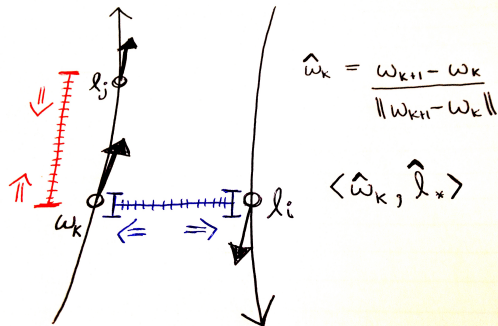 ℓ_j
ω_k
ℓ_i
ω̂_k = (ω_{k+1} - ω_k) / ‖ω_{k+1} - ω_k‖
⟨ω̂_k, ℓ̂_*⟩